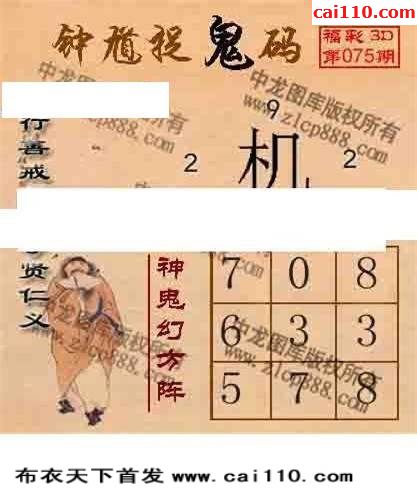 cai110.com
钟馗捉鬼码
福彩3D
第075期
行善戒
9
2
机
2
贤仁义
神鬼幻方阵
7 0 8
6 3 3
5 7 8
中龙图库版权所有
www.zlcp888.com
布衣天下首发 www.cai110.com